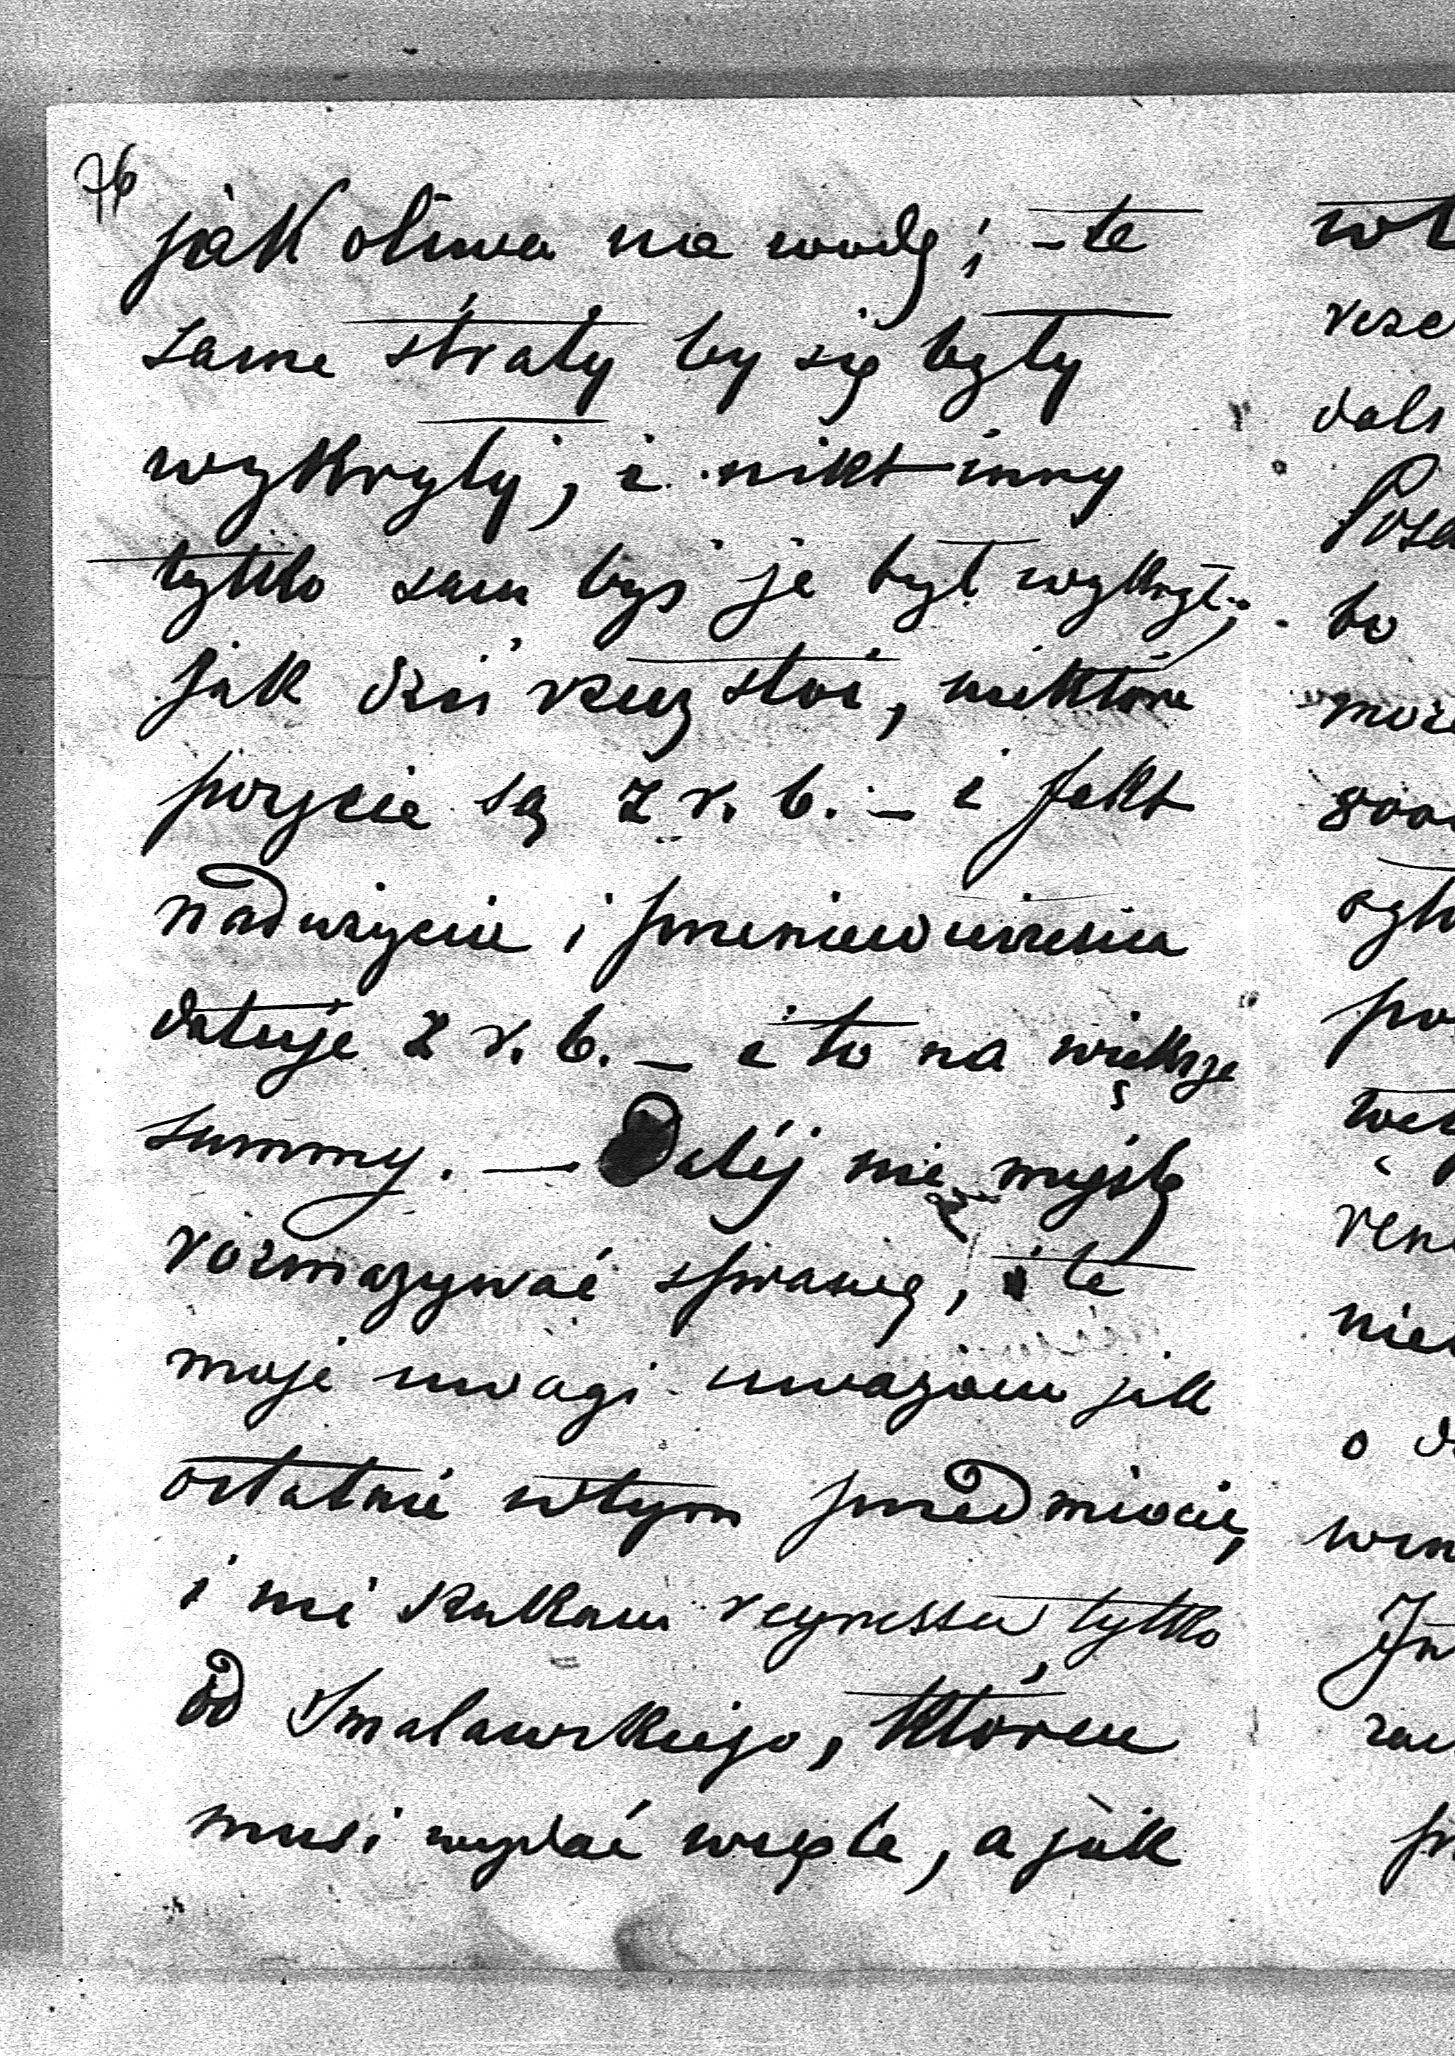 76
jak oliwa na wodę; - te
same straty by się były
wykryły, i nikt inny
tylko sam byś je był wykrył;
jak dziś rzeczy stoi, niektóre
pozycie są z r. b. - i fakt
nadużycia i przeniewierzenia
datuje z r. b. - i to na większe
summy. - Daléj nie myślę
rozmazywać sprawę, i te
moje uwagi uważam jak
ostatnie w tym przedmiocie,
i nie szukam regressu tylko
od Smalawskiego, któren
musi wydać wsęple, a jak
wt
rze
dals
Poza
to
może
ogło
po
nie
o d
win